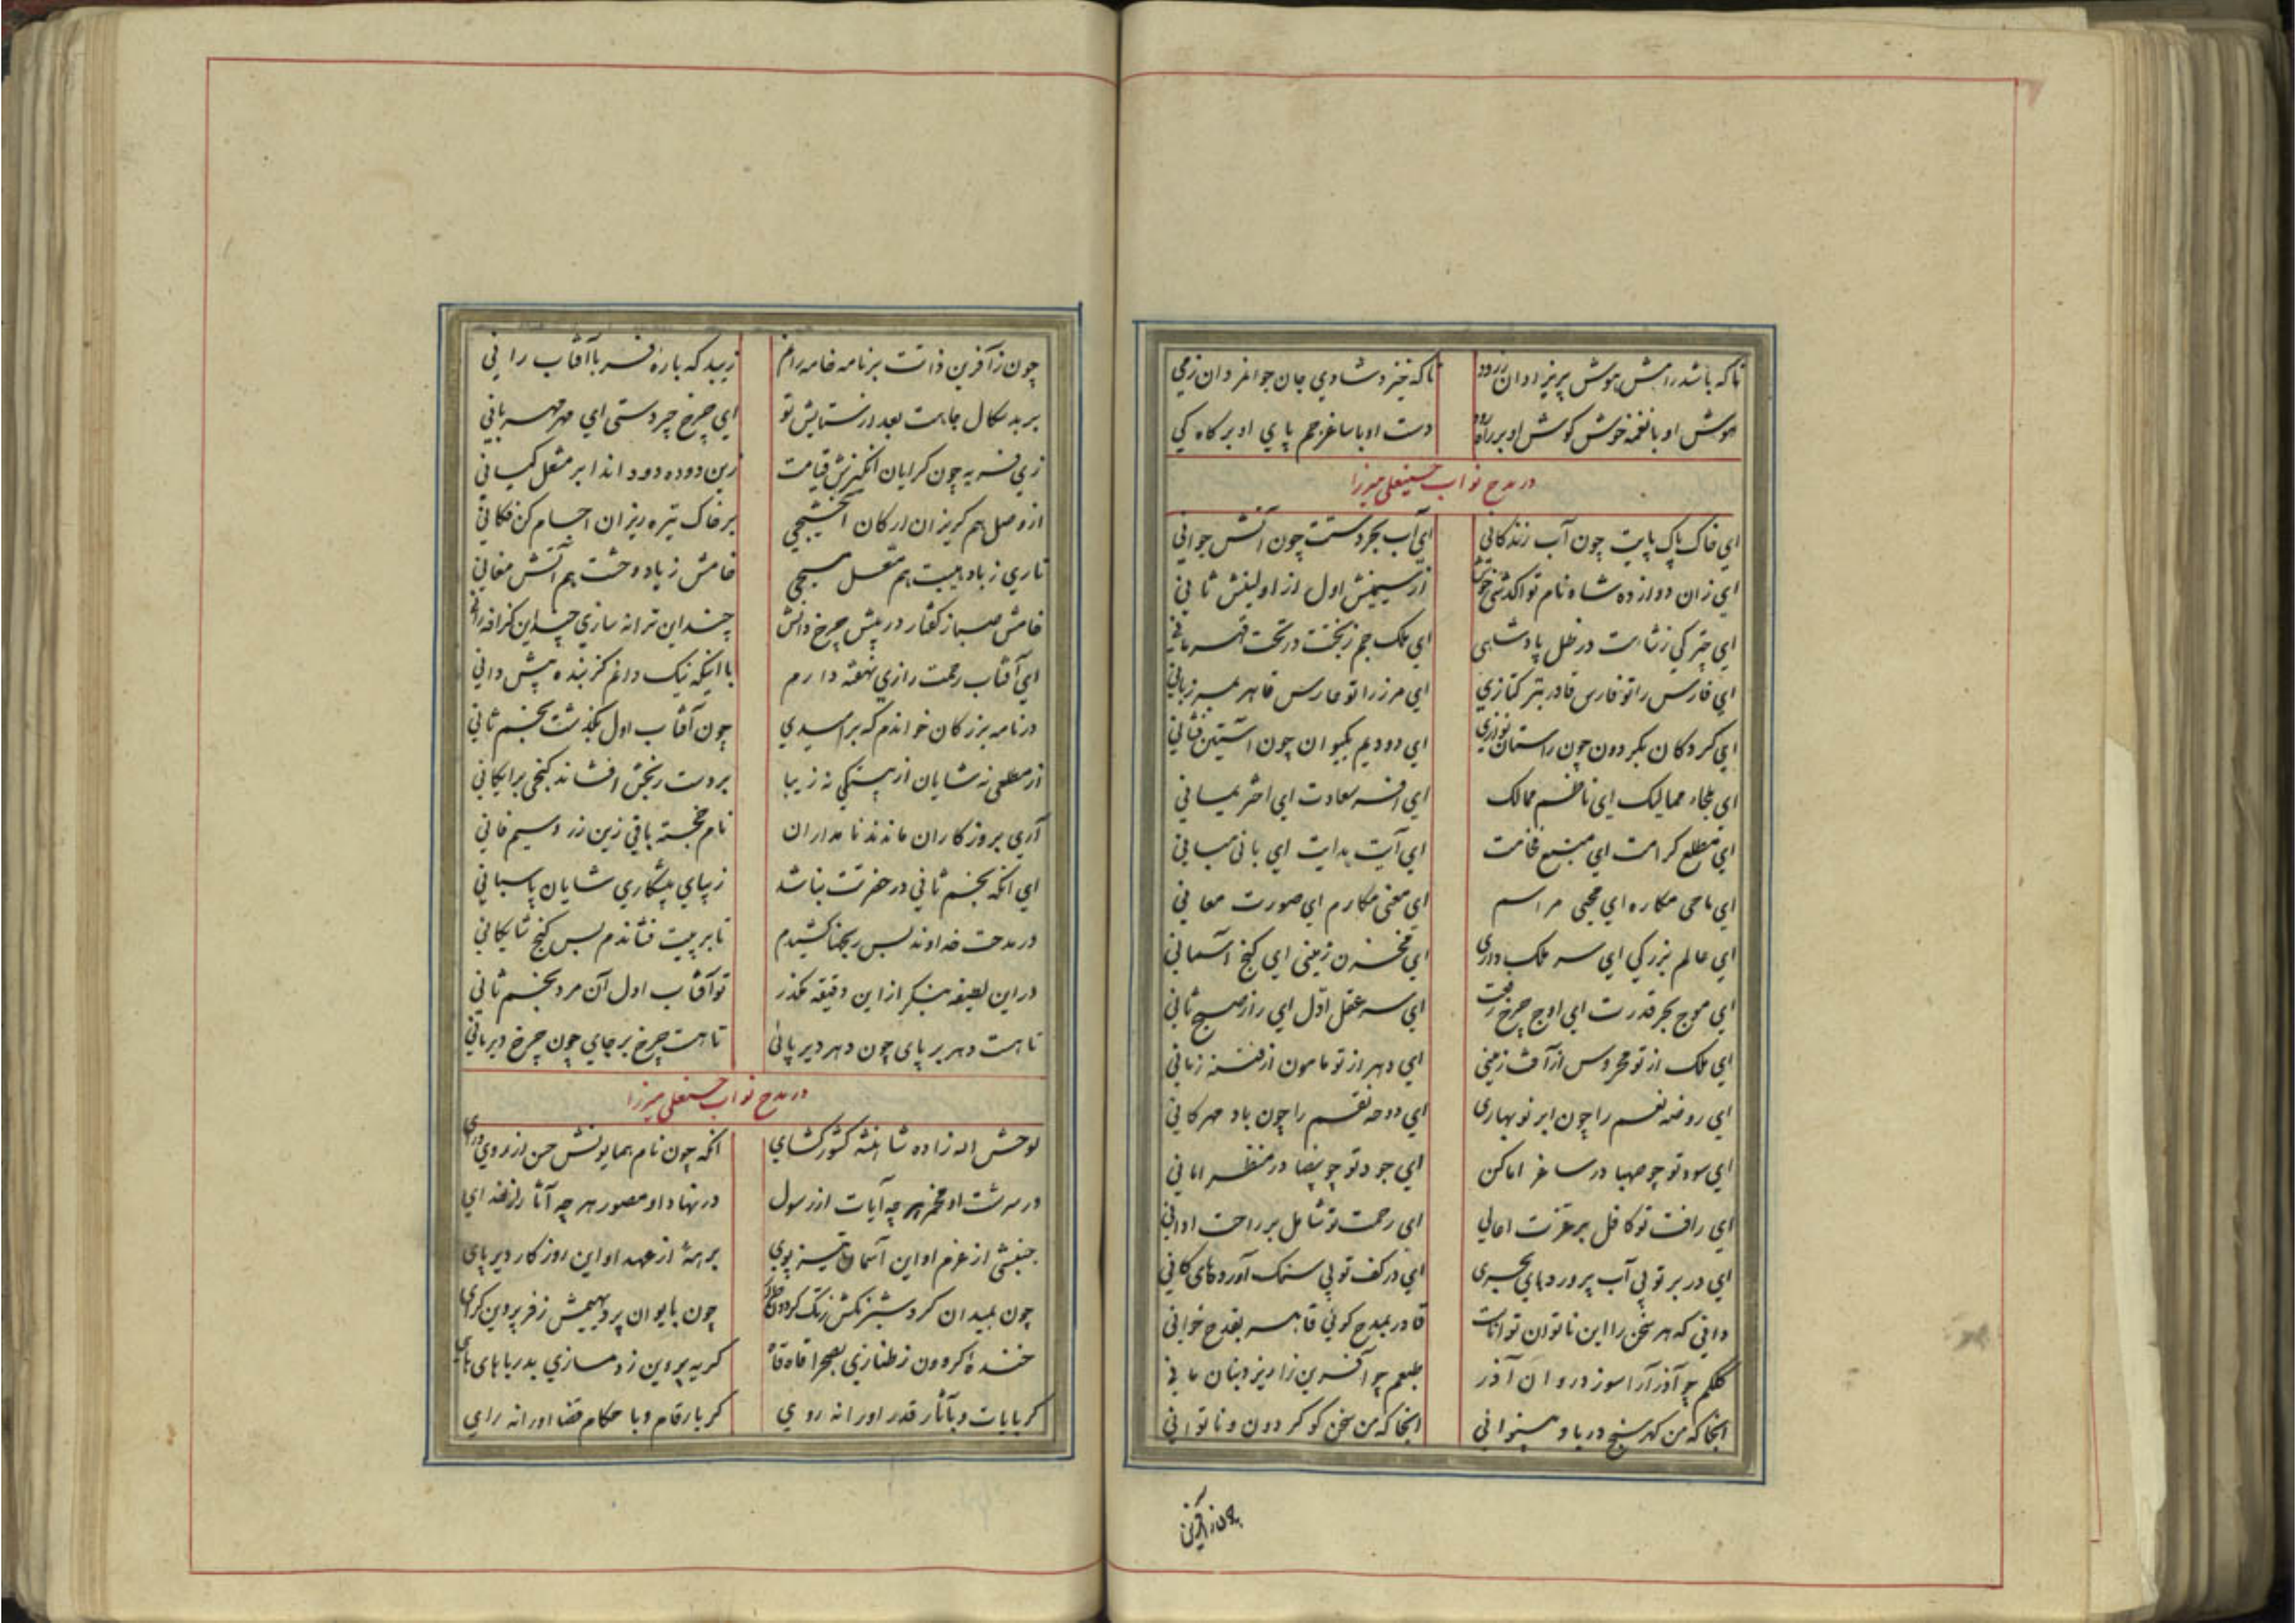 تا که باشد رامش هوش پریزادان ز رود تا که خیزد شادی جان جوانمردان ز می
هوش او با نغمه خوش گوش او بر دست او با ساغر جم پای او بر گاه کی
در مدح نواب حسینعلی میرزا
ای خاک پاک پایت چون آب زندگانی ای آب بحر دستت چون آتش جوانی
ای زان دوازده شاه نام تو از سیمینش اول از اولینش ثانی
ای چتر کی ز شانت در ظل پادشاهی ای ملک جم ز بختت در تحت قهرمانی
ای فارس را تو فارس قادر بتر کتازی ای مرز را تو حارس قاهر بمرزبانی
ای کردکان بگردون چون راستان ای دو دیم بکیوان چون آستین فشانی
ای ملجاء ممالیک ای ناظم ممالک ای افسر سعادت ای اختر یمانی
ای مطلع کرامت ای منبع فخامت ای آیت هدایت ای بانی مبانی
ای ماحی مکاره ای محیی مراسم ای معنی مکارم ای صورت معانی
ای عالم بزرگی ای سر ملک داری ای مخزن زمینی ای گنج آسمانی
ای موج بحر قدرت ای اوج چرخ رفعت ای سر عقل اول ای راز صبح ثانی
ای ملک از تو محروس از آفت زمینی ای دهر از تو مامون از فتنه زمانی
ای روضه نعم را چون ابر نوبهاری ای دوحه نقم را چون باد مهرکانی
ای سود تو چو صهبا در ساغر اماکن ای جود تو چو بیضا در منظر امانی
ای رافت تو کافل بر عزت اعالی ای رحمت تو شامل بر راحت ادانی
ای در بر تو بی آب پرورد های بحری ای در کف تو بی سنک آورد های کانی
دانی که هر سخن را این ناتوان تواناست قادر بمدح گوئی قاهر بقدح خوانی
کلکم چو آذر آرا سوزد روان آذر طبعم چو آفرین زا ریزد بنان مانی
آنجا که من کهر سنج دریا و بینوائی آنجا که من سخن گو گردون و ناتوانی
چون ز آفرین
چون ز آفرین ذاتت بر نامه خامه رانم زیبد که باره فر با آفتاب رانی
بر بد سکال جاهت بعد از ستایش تو ای چرخ چردستی ای مهر مهربانی
زی فربه چون گرایان انگیزش قیامت زین دوده دود اندا بر مشعل کیانی
از وصل هم گریزان ارکان آخشیجی بر خاک تیره ریزان اجسام کن فکانی
تاری ز باد هیبت هم مشعل مسیحی خامش ز باد وحشت هم آتش مغانی
خامش صبا ز گفتار در پیش چرخ دانش چند این ترانه سازی چند این گزافه رانی
ای آفتاب رحمت رازی نهفته دارم با اینکه نیک دانم کز بنده بیش دانی
در نامه بزرگان خواندم که بر اسیدی چون آفتاب اول بگذشت بخنم ثانی
از مطلعی نه شایان از بستگی نه زیبا بر دست رنجش افشاند گنجی برایگانی
آری بروزگاران ماندند نامداران نام خجسته باقی زین زر و سیم فانی
ای آنکه بخنم ثانی در حضرتت نباشد زیبای پیشکاری شایان پاسبانی
در مدحت خداوند بس رنجها کشیدم تا بر پیت فشاندم بس گنج شایگانی
در این لطیفه بنگر از این دقیقه مگذر تو آفتاب اول آن مرد بخنم ثانی
تا هست دهر بر پای چون دهر دیر پائی تا هست چرخ بر جای چون چرخ دیر مانی
در مدح نواب حسنعلی میرزا
لوحش اله زاده شاهنشه کشور گشای آنکه چون نام همایونش حسن از روی
در سرشت او مخمر هر چه آیات از رسول در نهاد او مصور هر چه آثار از خدای
جنبشی از عزم او این آسمان تیز پوی برهه از عهد او این روزگار دیر پای
چون بمیدان گرد شبرنگش ز رنگ گردون چون بایوان پر دیهیمش ز فر پروین گرای
خنده گردون ز طنازی بصحرا قاه قاه گریه پروین ز دمسازی بدریا های های
گر بایات و بآثار قدر او رانه روی گر بارقام و باحکام قضا او رانه رای